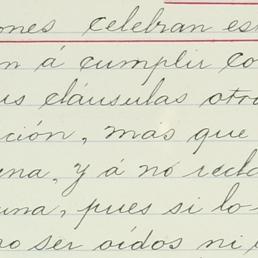 ones celebran es
n á cumplir co
us cláusulas otro
ción, más que
ena, y á no recla
una, pues si lo
o ser oídos ni